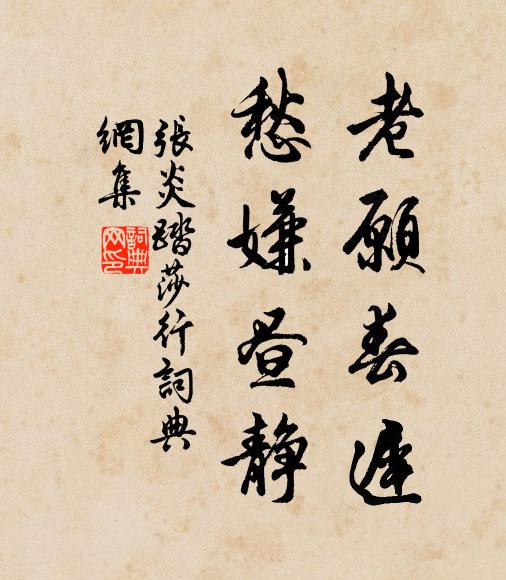 老願春遲
愁嫌昼静
張炎踏莎行詞典
網集
詞典
网印